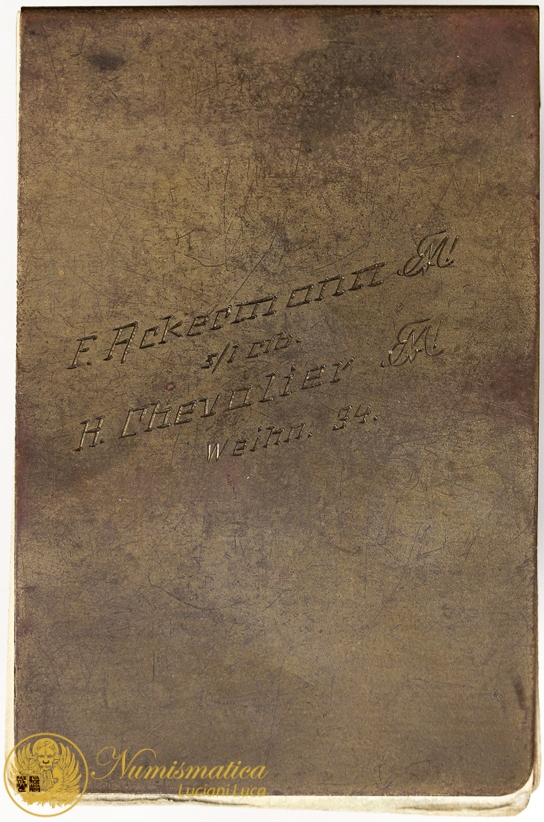 F. Ackermann M!
s/l. Lb.
H. Chevalier M!
Weihn. 94.
Numismatica
Luciani Luca